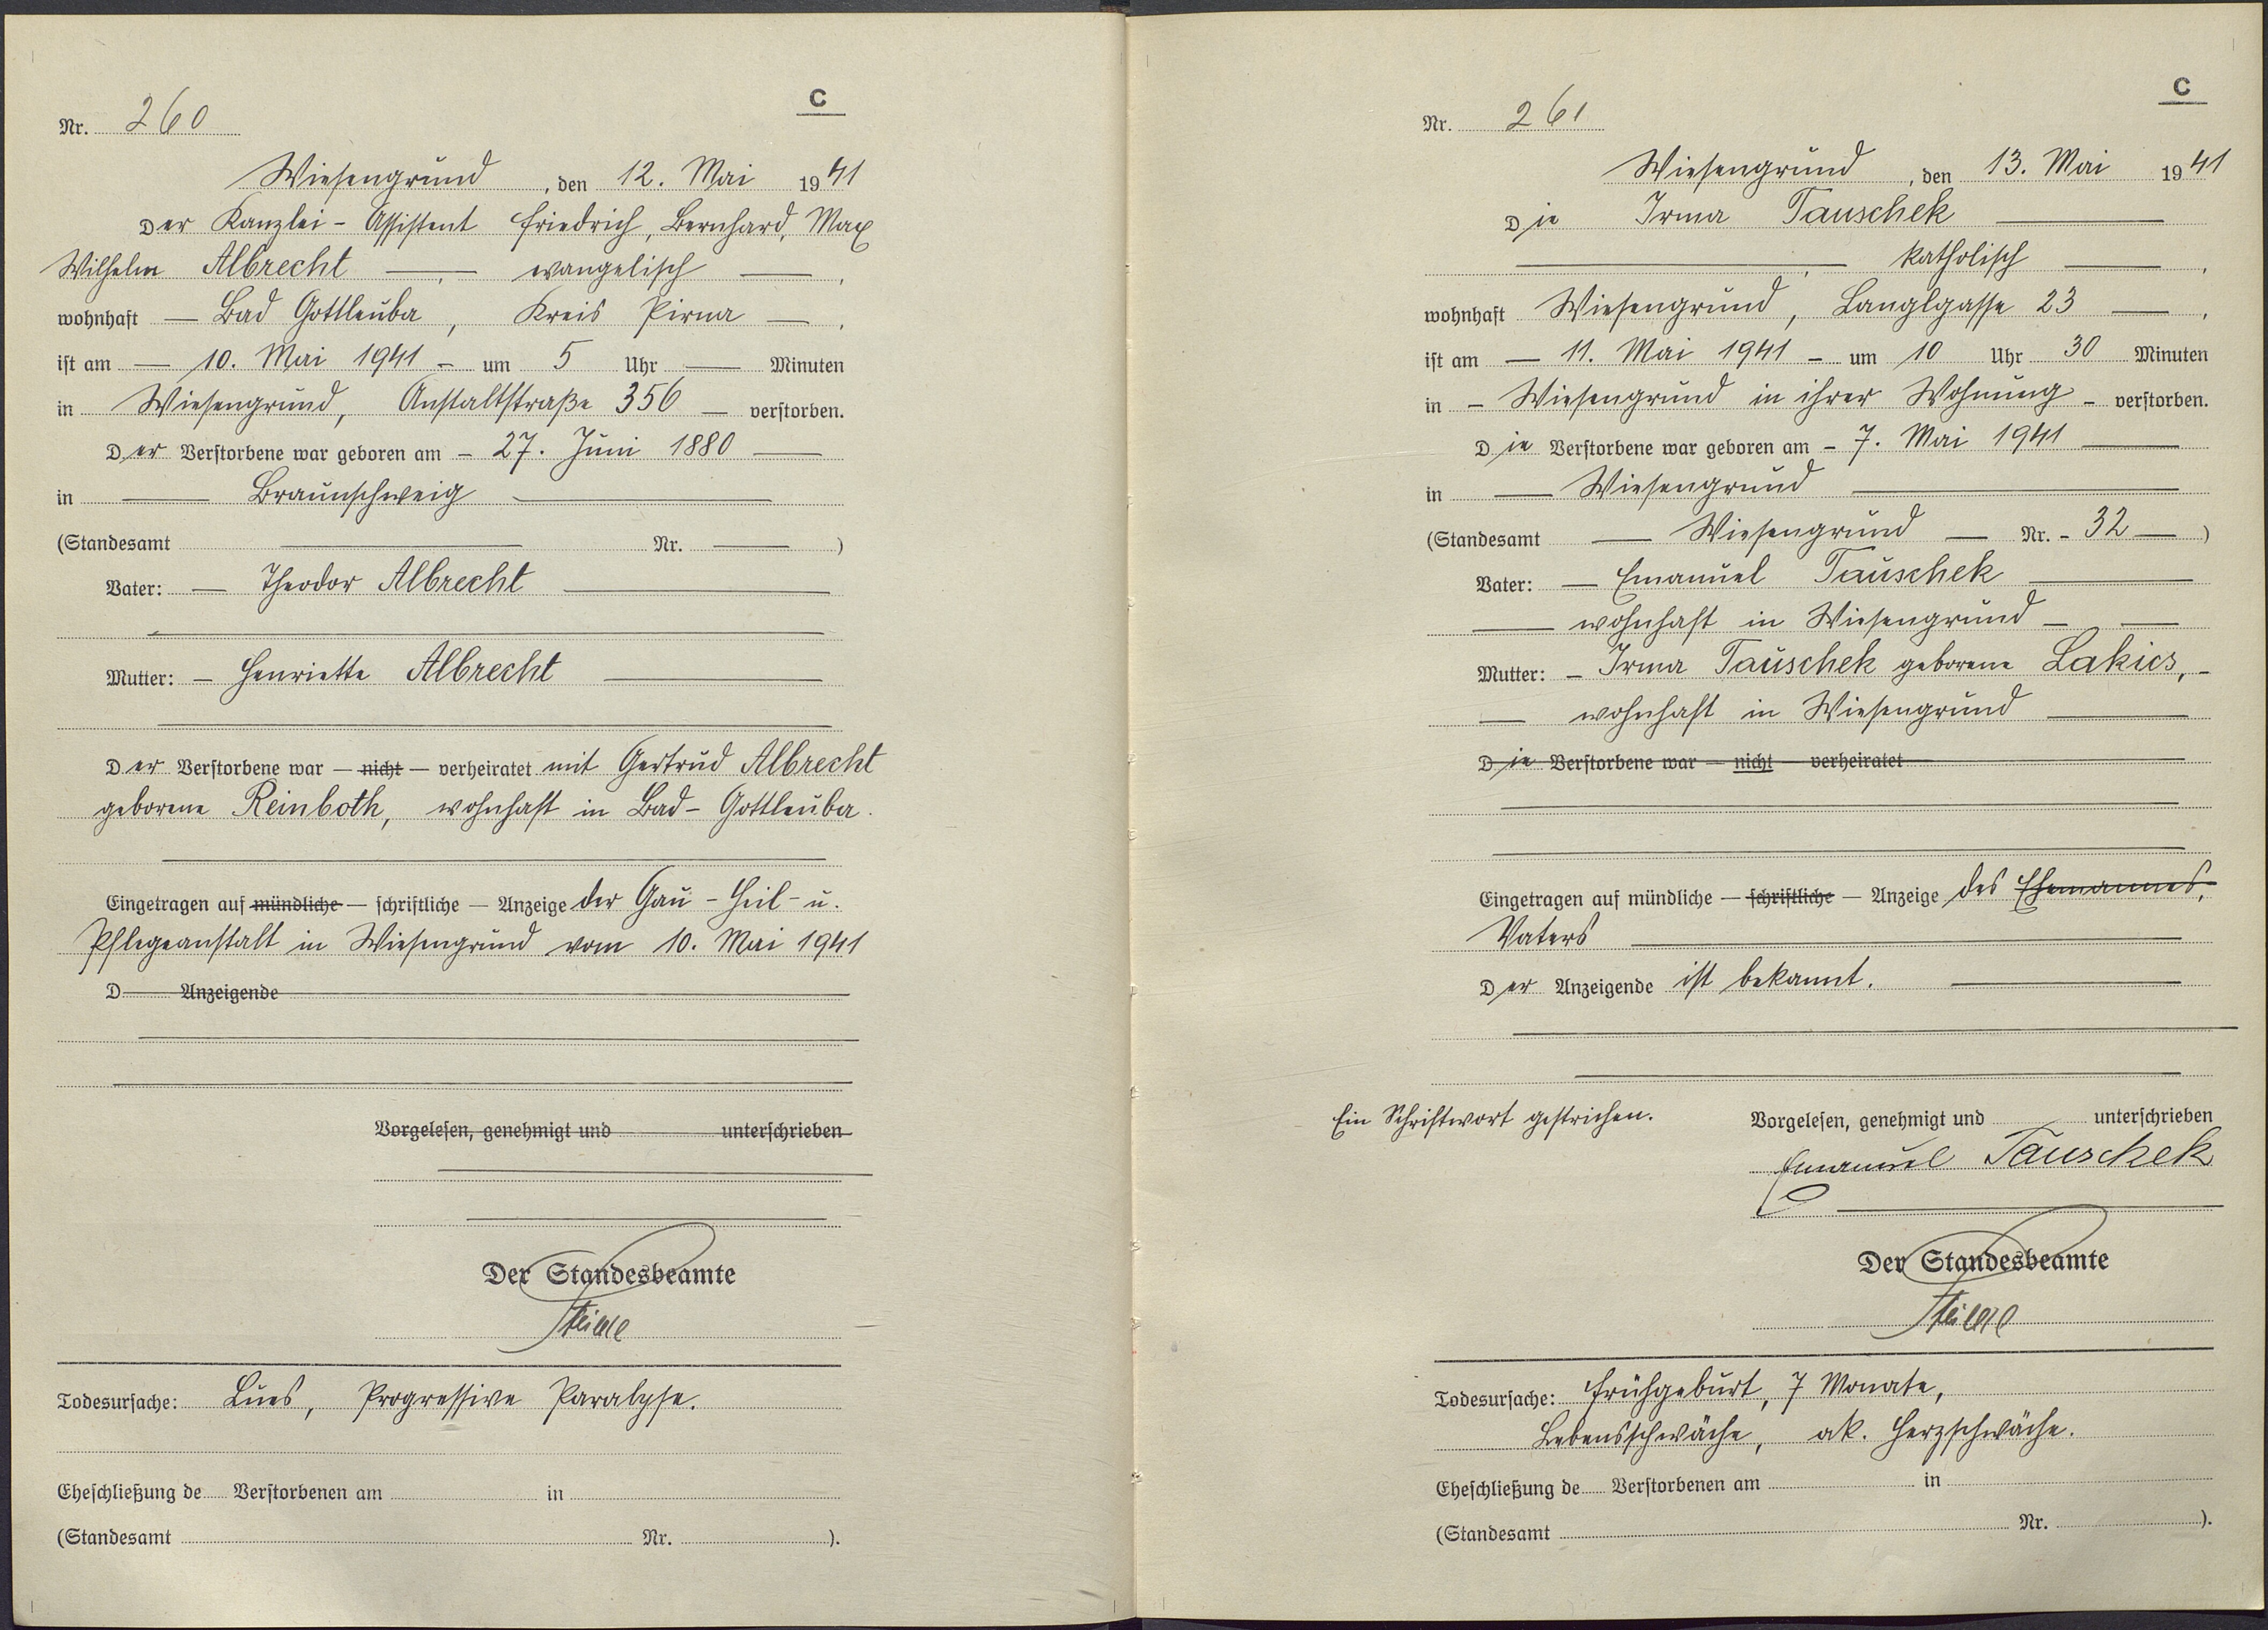 C
Nr. 260
Wiesengrund, den 12. Mai 1941
Der Kanzlei-Assistent Friedrich, Bernhard, Max
Wilhelm Albrecht —, evangelisch —,
wohnhaft — Bad Gottleuba, Kreis Pirna —,
ist am — 10. Mai 1941 — um 5 Uhr — Minuten
in Wiesengrund, Anstaltstraße 356 — verstorben.
Der Verstorbene war geboren am — 27. Juni 1880 —
in — Braunschweig —
(Standesamt — Nr. — )
Vater: — Theodor Albrecht —
Mutter: — Henriette Albrecht —
Der Verstorbene war — nicht — verheiratet mit Gertrud Albrecht
geborene Reinboth, wohnhaft in Bad-Gottleuba.
Eingetragen auf mündliche — schriftliche — Anzeige der Gau-Heil- u.
Pflegeanstalt in Wiesengrund vom 10. Mai 1941
D Anzeigende
Vorgelesen, genehmigt und unterschrieben
Der Standesbeamte
Todesursache: Lues, Progressive Paralyse.
Eheschließung de Verstorbenen am in
(Standesamt Nr. ).
C
Nr. 261
Wiesengrund, den 13. Mai 1941
Die Irma Tauschek —
—, katholisch —,
wohnhaft Wiesengrund, Langlgasse 23 —,
ist am — 11. Mai 1941 — um 10 Uhr 30 Minuten
in — Wiesengrund in ihrer Wohnung — verstorben.
Die Verstorbene war geboren am — 7. Mai 1941 —
in — Wiesengrund —
(Standesamt — Wiesengrund — Nr. — 32 — )
Vater: — Emanuel Tauschek —
— wohnhaft in Wiesengrund —
Mutter: — Irma Tauschek geborene Lakics, —
— wohnhaft in Wiesengrund —
Die Verstorbene war — nicht — verheiratet
Eingetragen auf mündliche — schriftliche — Anzeige des Ehemannes,
Vaters —
Der Anzeigende ist bekannt. —
Ein Schriftwort gestrichen.
Vorgelesen, genehmigt und unterschrieben
Emanuel Tauschek
Der Standesbeamte
Todesursache: Frühgeburt, 7 Monate,
Lebensschwäche, ak. Herzschwäche.
Eheschließung de Verstorbenen am in
(Standesamt Nr. ).